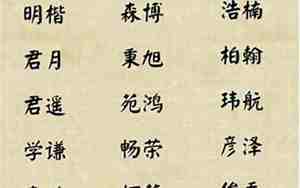 明楷 森博 浩楠
君月 秉旭 柏翰
君遥 苑鸿 玮航
学谦 畅荣 彦泽